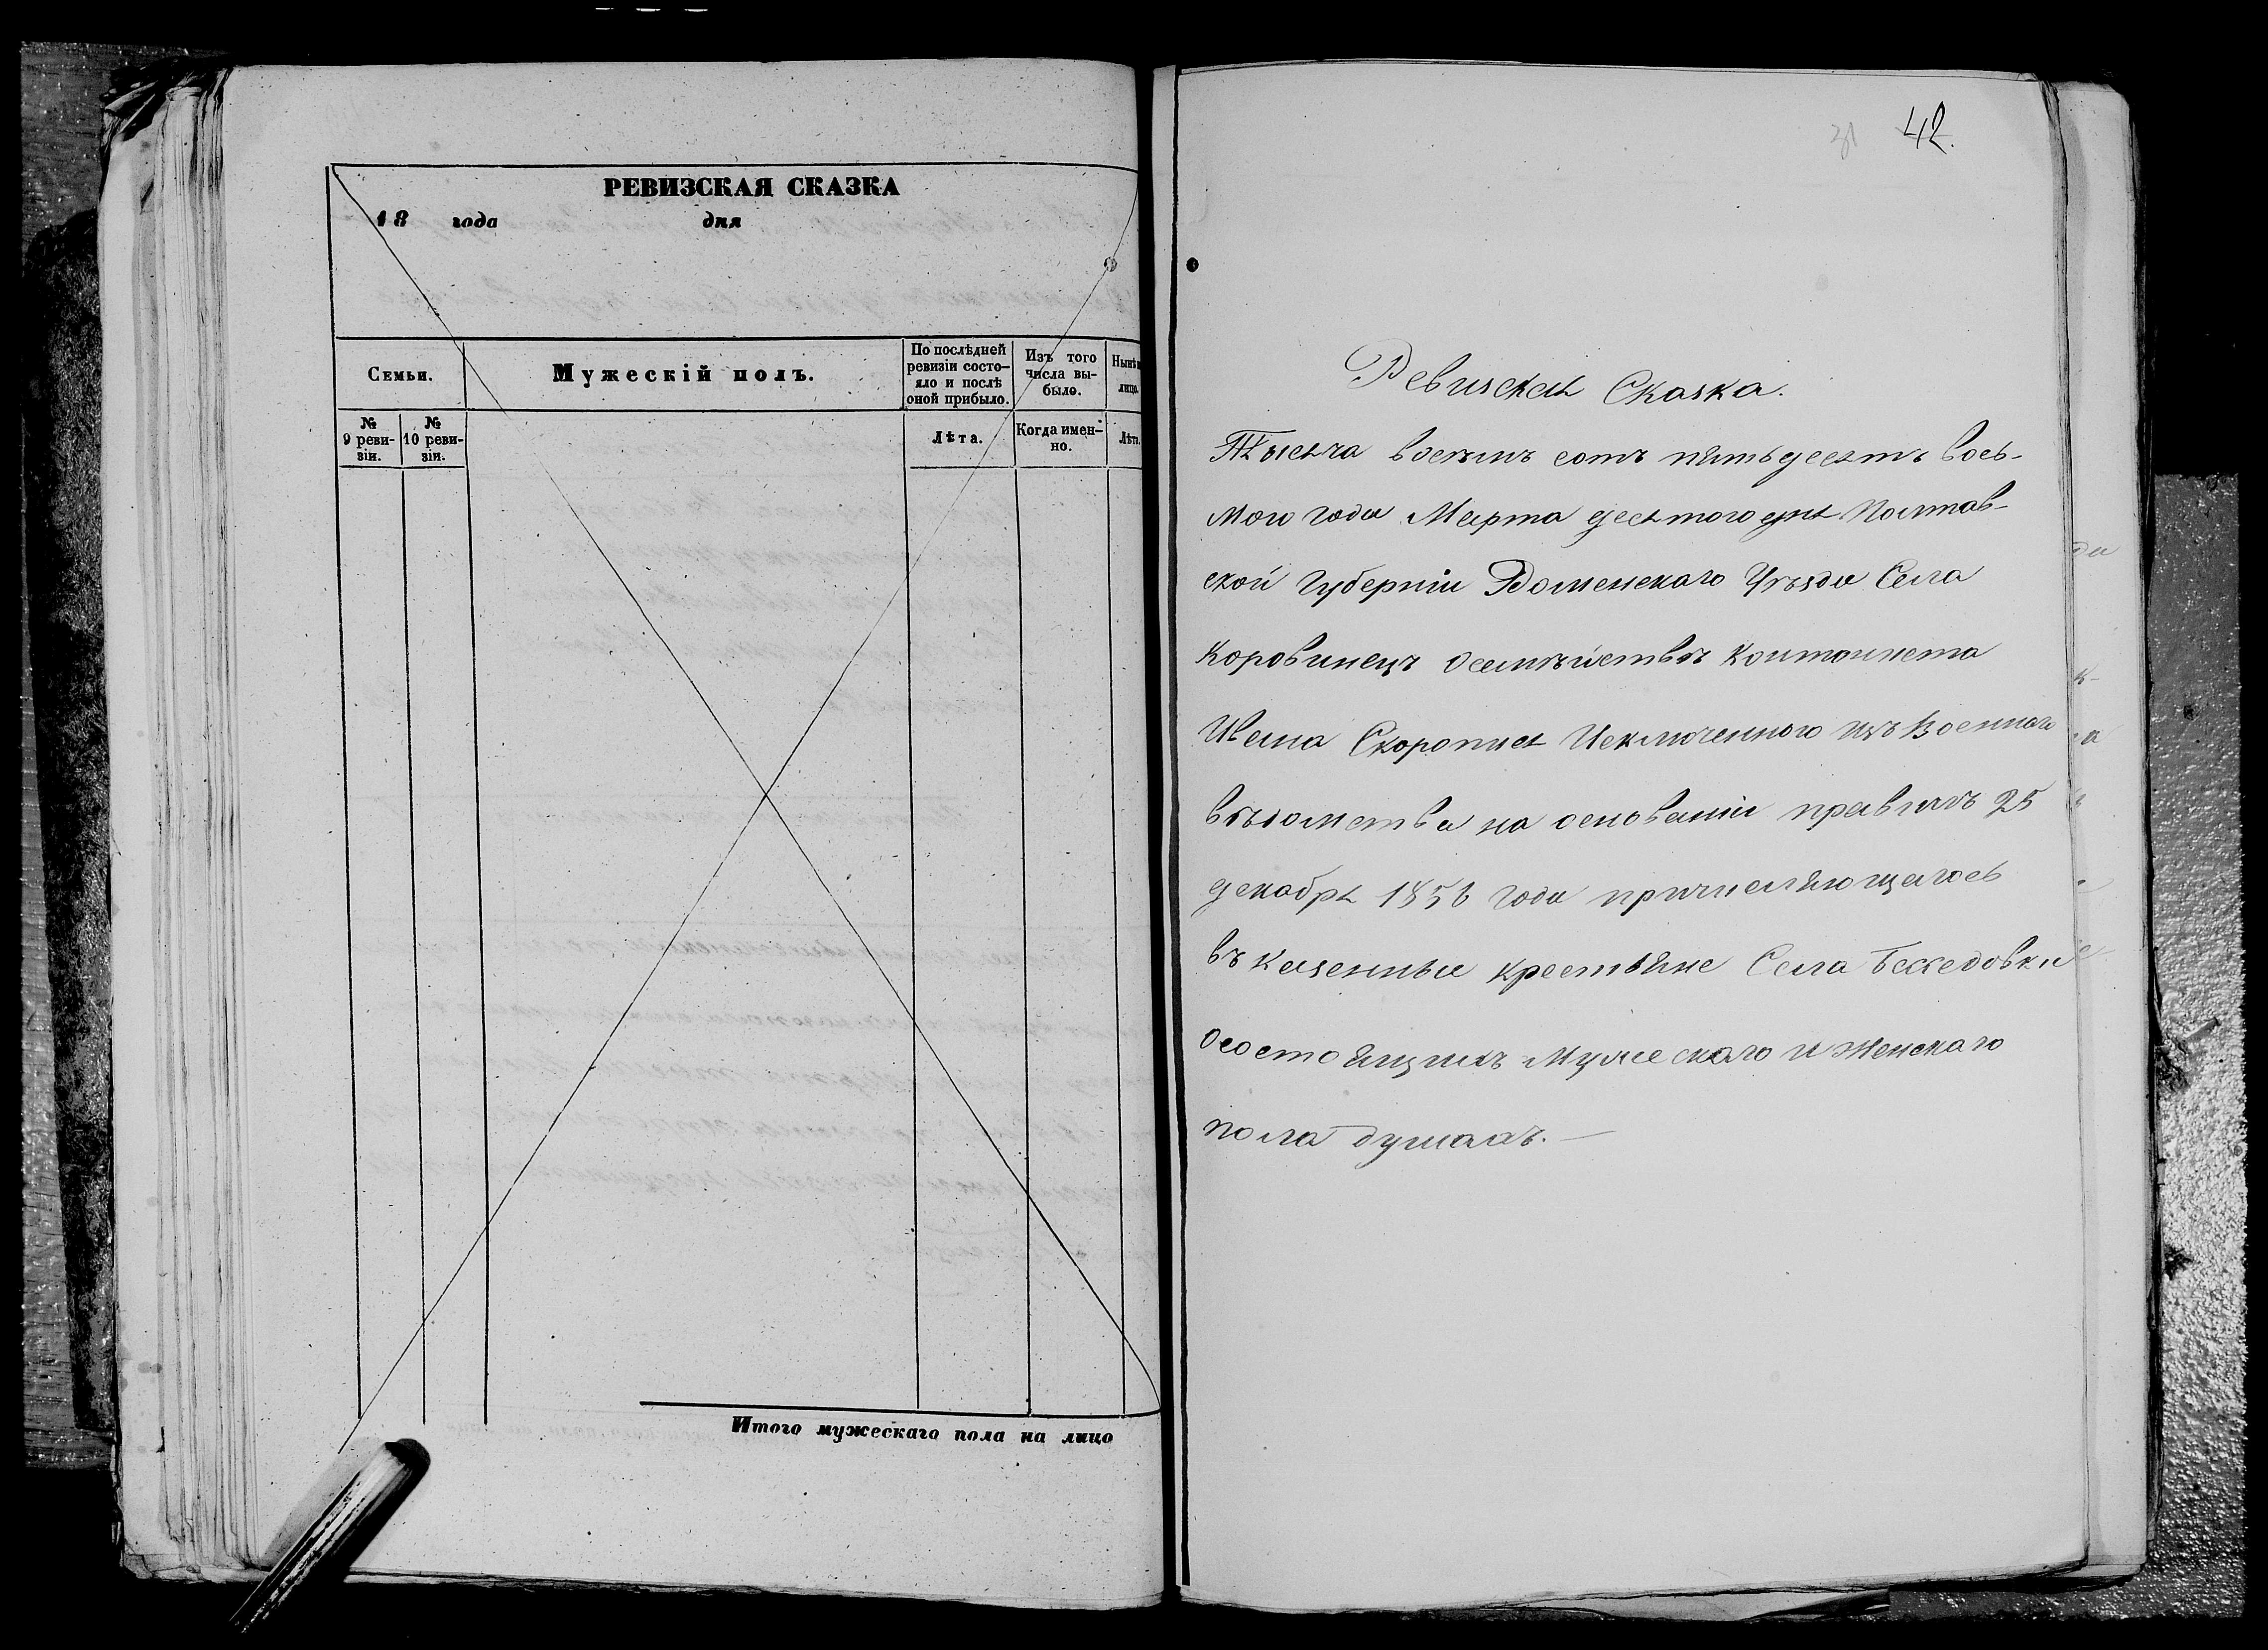 РЕВИЗСКАЯ СКАЗКА
18 года дня
Семьи.
Мужескій полъ.
По послѣдней ревизіи состо-
яло и послѣ оной прибыло.
Изъ того числа вы-
было.
Нынѣ
лицо.
№ 9 реви-
зіи.
№ 10 реви-
зіи.
Лѣта.
Когда имен-
но.
Лѣта.
Итого мужескаго пола на лицо
42.
Ревизская Сказка.
Тысяча восемь сотъ пятьдесятъ вось-
мого года Марта десятого дня Полтав-
ской Губерніи Роменскаго Уѣзда Села
Коровинецъ о семѣйствѣ Контониста
Ивана Скорописа Исключенного изъ Военного
вѣдомства на основаніи правилъ 25
декабря 1856 года причисляющагось
въ казенныи крестьяне Села Беседовки
о состоящихъ Мужескаго и Женскаго
пола душахъ.—